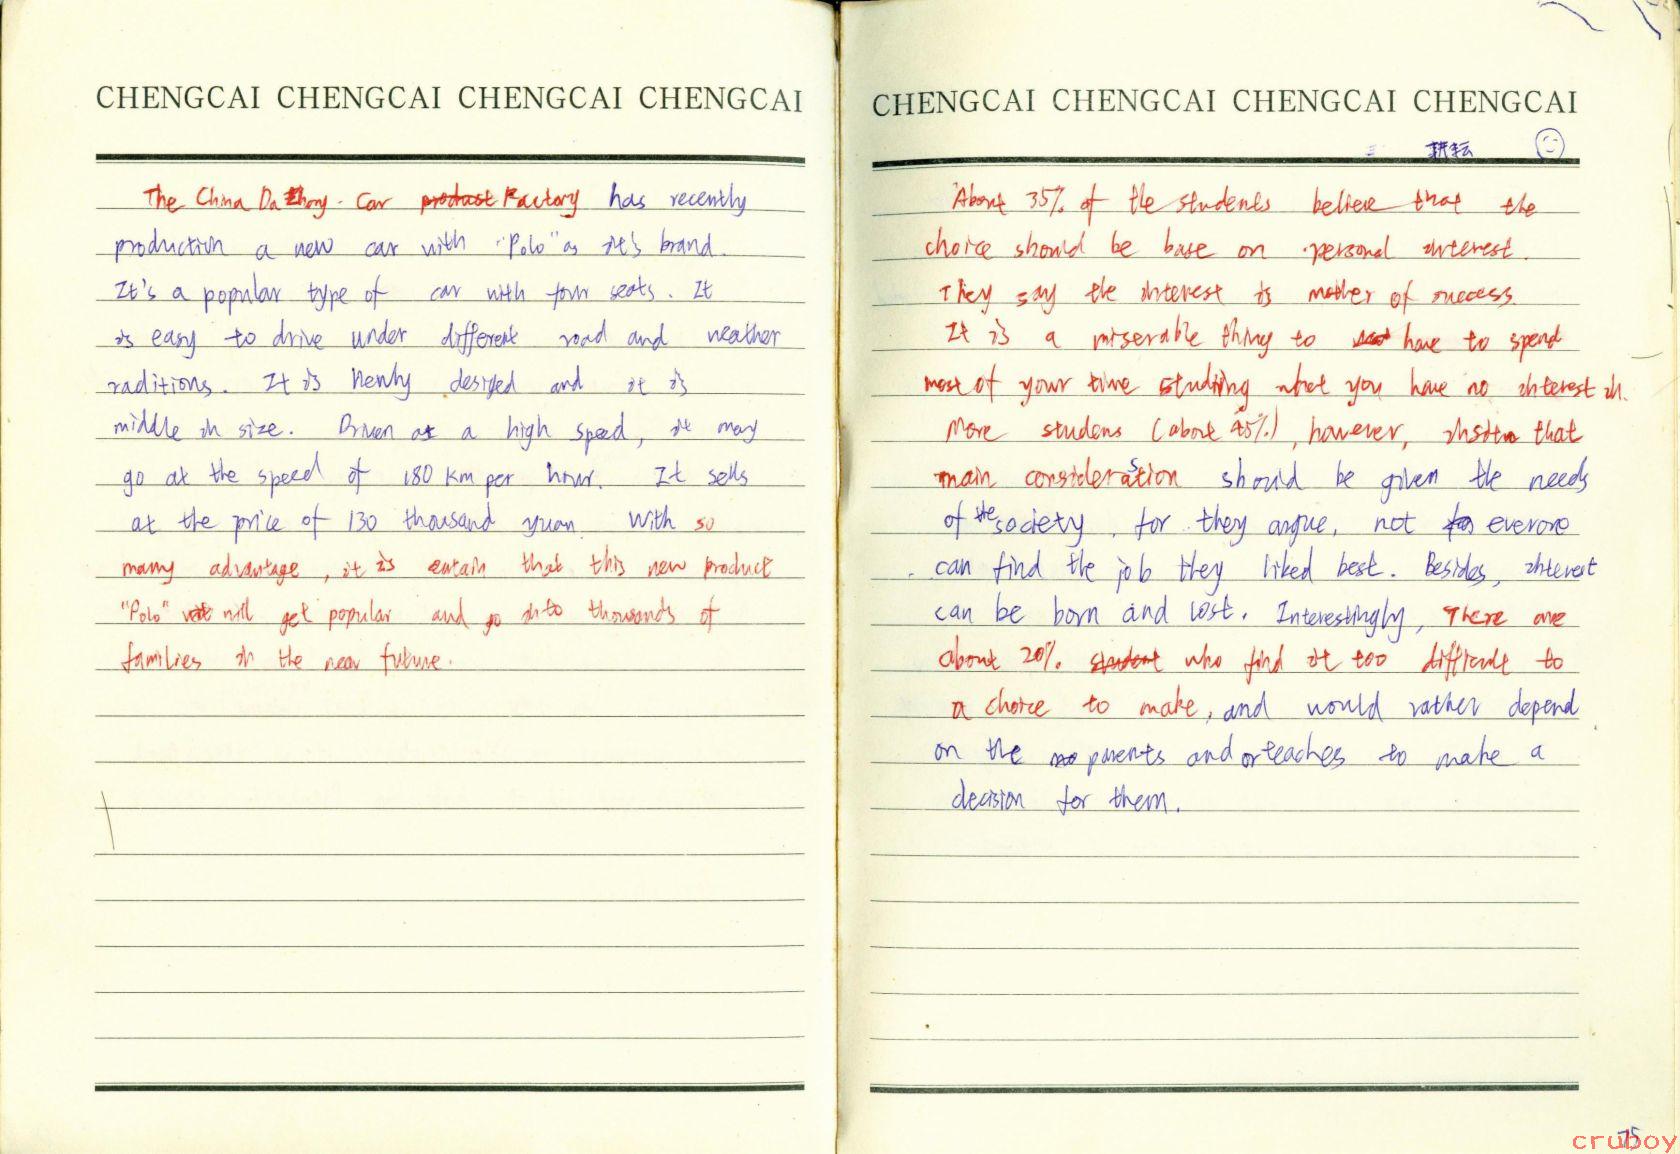 CHENGCAI CHENGCAI CHENGCAI CHENGCAI
The China Da Zhong Car product Factory has recently
production a new car with "Polo" as it's brand.
It's a popular type of car with four seats. It
is easy to drive under different road and weather
raditions. It is newly desided and it is
middle in size. Driven at a high speed, it may
go at the speed of 180 km per hour. It sells
at the price of 130 thousand yuan. With so
many advantage, it is certain that this new product
"Polo" will get popular and go into thousands of
families in the near future.
CHENGCAI CHENGCAI CHENGCAI CHENGCAI
耕耘
About 35% of the students believe that the
choice should be base on personal interest.
They say the interest is mother of success.
It is a miserable thing to have to spend
most of your time studing what you have no interest in.
More studens (about 45%), however, that
main consideration should be given the needs
of the society, for they argue, not everone
can find the job they liked best. Besides, interest
can be born and lost. Interestingly, There are
about 20% student who find it too difficult to
a choice to make, and would rather depend
on the parents and or teaches to make a
decision for them.
75
cruboy